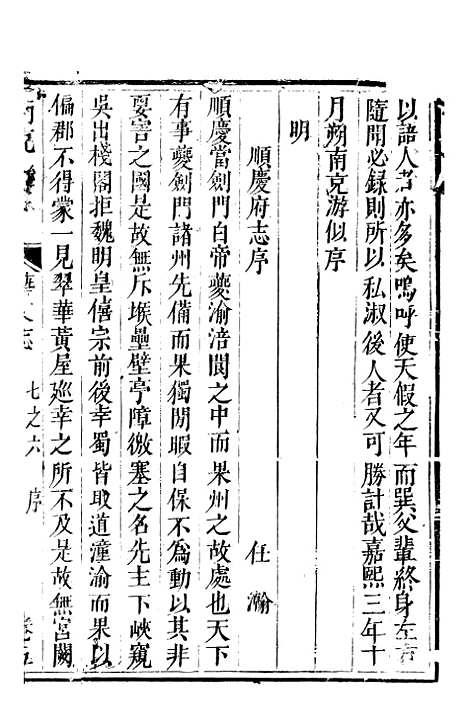 以語人者亦多矣嗚呼使天假之年而巽父輩終身左右
隨聞必錄則所以私淑後人者又可勝計哉嘉熙三年十
月朔南充游似序
明
順慶府志序　任瀚
順慶當劍門白帝夔渝涪閬之中而果州之故處也天下
有事夔劍門諸州先備而果獨閒暇自保不為動以其非
要害之國是故無斥堠壘壁亭障徼塞之名先主下峽窺
吳出棧閣拒魏明皇僖宗前後幸蜀皆取道潼渝而果以
偏郡不得蒙一見翠華黃屋廵幸之所不及是故無宮闕
藝文志　七之六　序　卷五